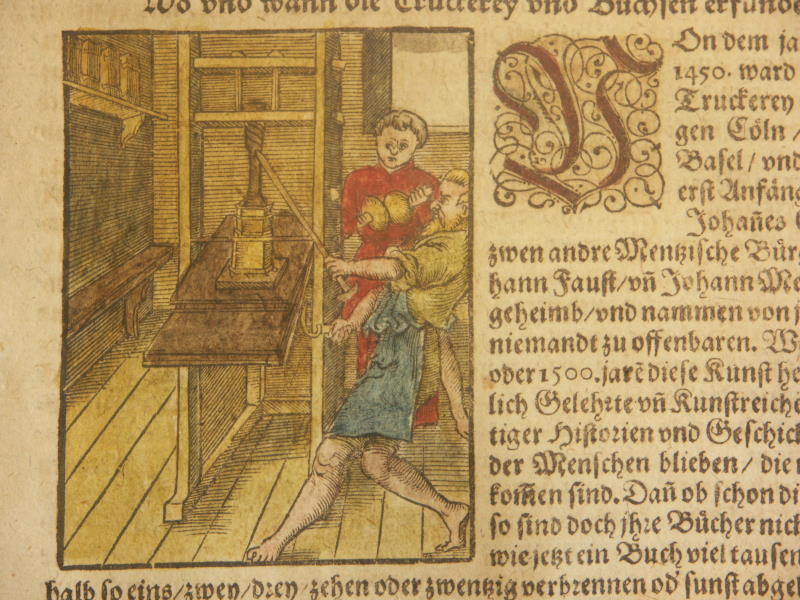 Wo vnd wann die Truckerey vnd Büchsen erfunde
VOn dem ja
1450. ward
Truckerey
gen Cöln /
Basel / vnd
erst Anfäng
Johañes G
zwen andre Mentzische Bürg
hann Faust / vñ Johann Me
geheimb / vnd nammen von j
niemandt zu offenbaren. W
oder 1500. jarẽ diese Kunst he
lich Gelehrte vñ Kunstreiche
tiger Historien vnd Geschich
der Menschen blieben / die
kom̃en sind. Dañ ob schon di
so sind doch jhre Bücher nich
wie jetzt ein Buch viel tausen
halb so eins / zwey / drey / zehen oder zwentzig verbrennen od' sunst abge